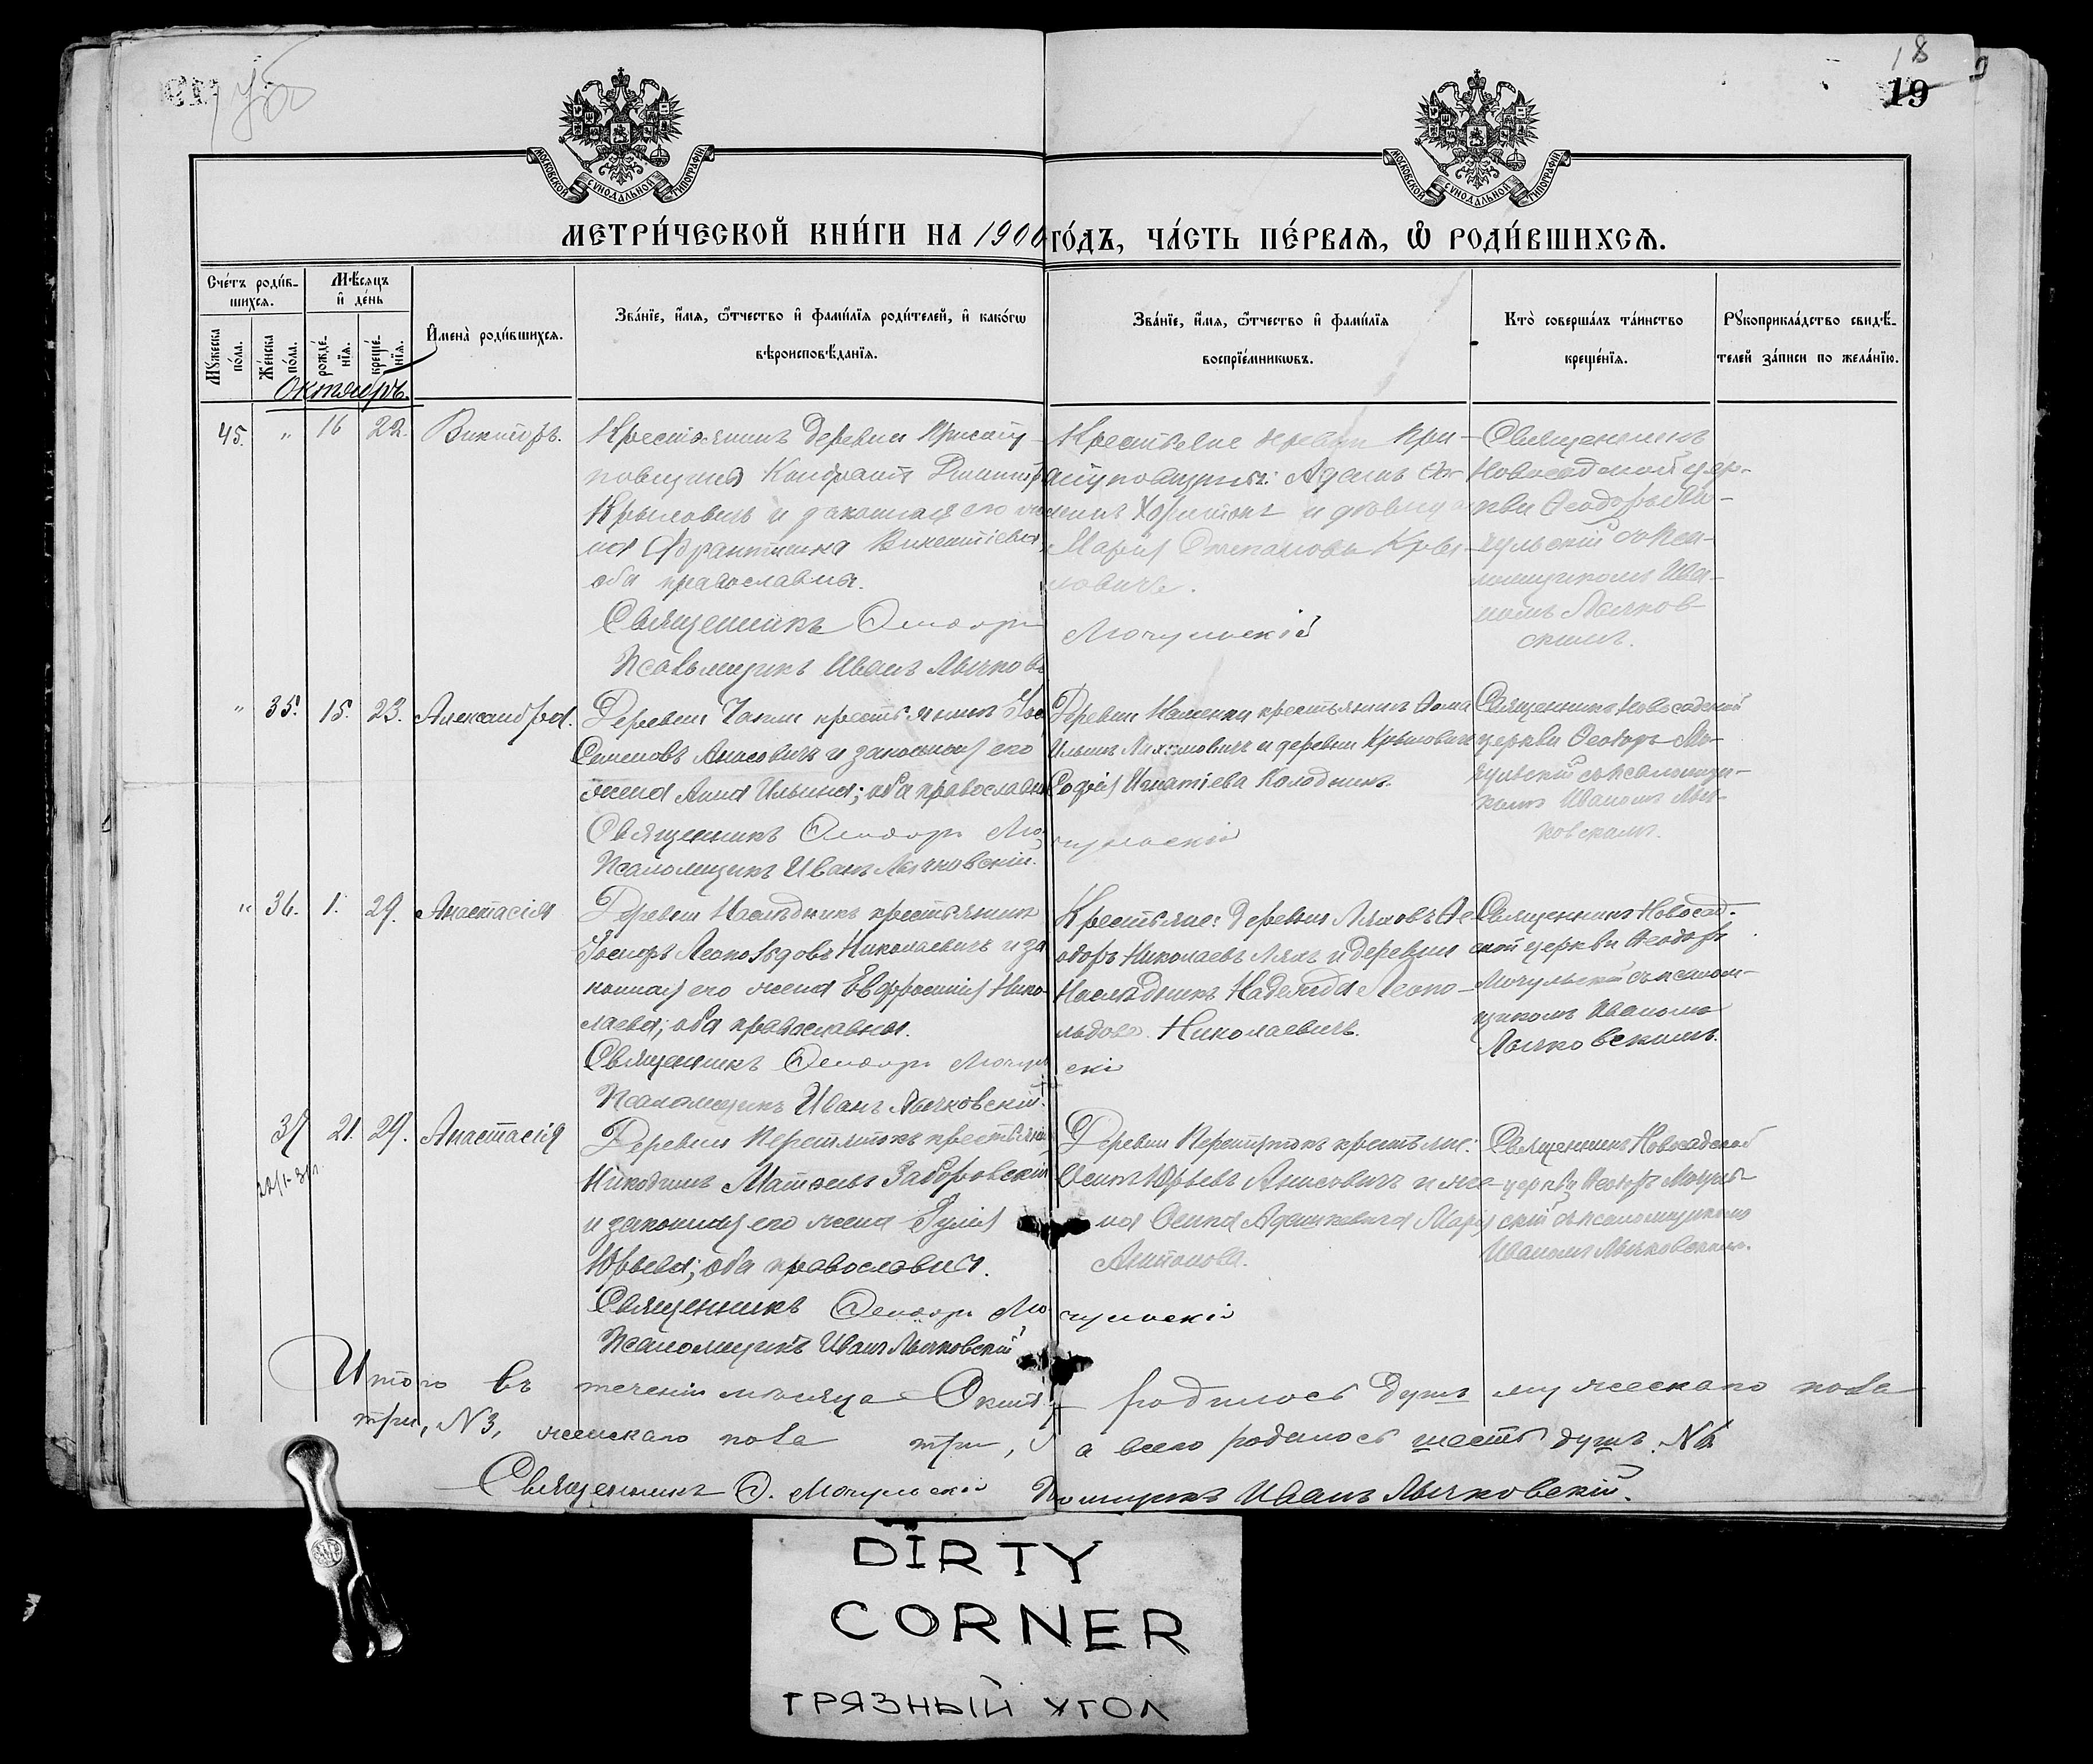 18
19
МОСКОВСКОЙ СѴНОДАЛЬНОЙ ТИПОГРАФІИ
МОСКОВСКОЙ СѴНОДАЛЬНОЙ ТИПОГРАФІИ
МЕТРИ́ЧЕСКОЙ КНИ́ГИ НА 1900 ГО́ДЪ, ЧА́СТЬ ПЕ́РВАѦ, Ѽ РОДИ́ВШИХСѦ.
Сче́тъ роди́в-
шихсѧ.
Мѣ́сѧцъ
и҆ де́нь
Мꙋ́жеска
по́ла.
Же́нска
по́ла.
рожде́-
нїѧ.
креще́-
нїѧ.
И҆мена̀ роди́вшихсѧ.
Зва́нїе, и҆́мѧ, ѻ҆́тчество и҆ фами́лїѧ роди́телей, и҆ како́гѡ
вѣроисповѣ́данїѧ.
Зва́нїе, и҆́мѧ, ѻ҆́тчество и҆ фами́лїѧ
воспрїе́мникѡвъ.
Кто̀ соверша́лъ та́инство
креще́нїѧ.
Рꙋкоприкла́дство свидѣ́-
телей за́писи по жела́нїю.
Октябрь.
45. " 16 22. Викторъ.
Крестьянинъ деревни
Крыловичъ и законная его
на Франтишка Викентіева,
оба православны.
Священникъ Ѳеодоръ
Псаломщикъ Иванъ
Крестьяне деревни При-
Адамъ
Харитонъ и
Марія Степанова Кры-
ловичъ.
Мочульскій
Священникъ
Новосадской цер-
кви Ѳеодоръ Мо-
чульскій съ Пса-
ломщикомъ Ива-
номъ Лычков-
скимъ.
" 35. 15. 23. Александра.
Деревни крестьянинъ
Семеновъ Анисовичъ и законная его
жена Анна Ильина; оба православны
Священникъ Ѳеодоръ Мо-
Псаломщикъ Иванъ Лычковскій.
Деревни крестьянинъ Ѳома
Ильинъ и деревни Крыловичи
Софія Игнатіева Колодникъ.
чульскій
Священникъ Новосадской
церкви Ѳеодоръ Мо-
чульскій съ псаломщи-
комъ Иваномъ Лыч-
ковскимъ.
" 36. 1. 29. Анастасія
Деревни Наслѣдникъ крестьянинъ
Іосифъ Леопольдовъ Николаевичъ и за-
конная его жена Евфросинія Нико-
лаева; оба православны.
Священникъ Ѳеодоръ Мочуль
Псаломщикъ Иванъ Лычковскій.
Крестьяне: деревни Ляховъ Ѳе-
одоръ Николаевъ Ляхъ и деревни
Наслѣдникъ Надежда Леопо-
льдова Николаевичъ.
скій
Священникъ Новосад-
ской церкви Ѳеодоръ
Мочульскій съ псалом-
щикомъ Иваномъ
Лычковскимъ.
37 21. 29. Анастасія
Деревни крестьянинъ
Никодимъ Матѳеевъ Заборовскій
и законная его жена Юлія
Юрьева; оба православны.
Священникъ Ѳеодоръ Мо-
Псаломщикъ Иванъ Лычковскій
Деревни крестьяне:
Осипъ Юрьевъ Анисовичъ и же-
на Осипа Адашкевича Марія
Антонова.
чульскій
Священникъ Новосадской
церкви Ѳеодоръ Мочуль-
скій съ псаломщикомъ
Иваномъ Лычковскимъ.
Итого въ теченіи мѣсяца Октября родилось душъ мужескаго пола
три, N3, женскаго пола три, а всего родилось шесть душъ. N6.
Священникъ Ѳ. Мочульскій Псаломщикъ Иванъ Лычковскій.
DIRTY
CORNER
ГРЯЗНЫЙ УГОЛ